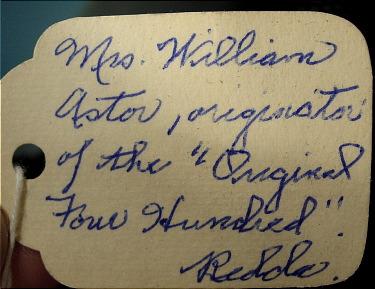 Mrs. William
Astor, originator
of the "Original
Four Hundred".
Redda.